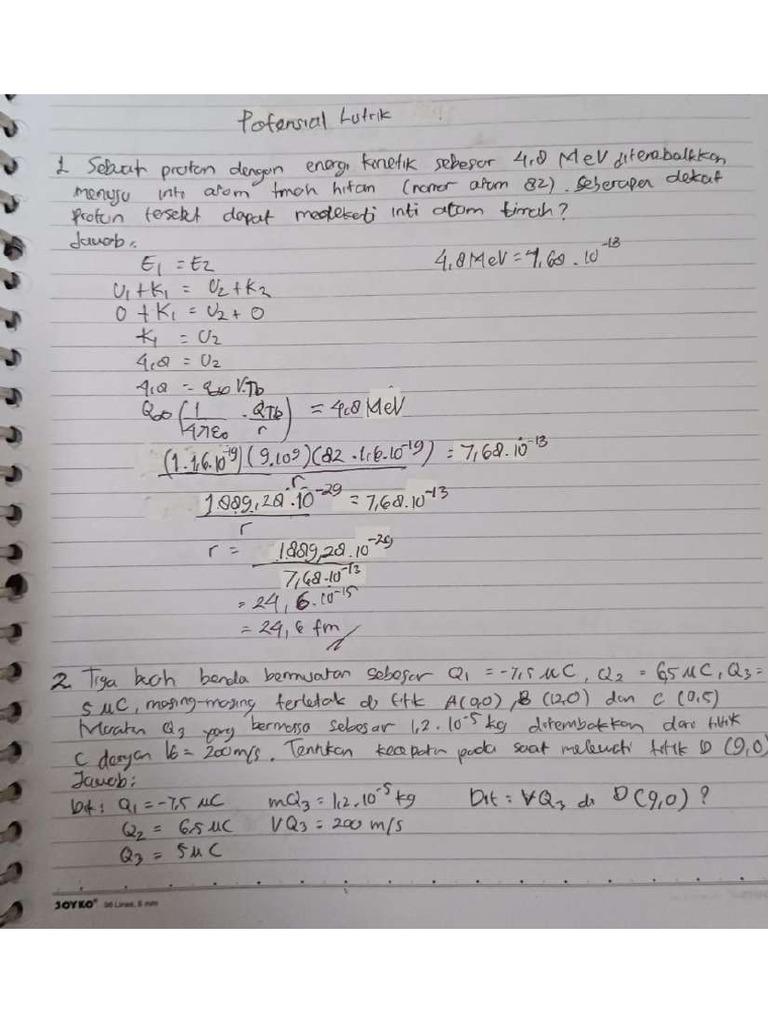 Potensial Listrik
1. Sebuah proton dengan energi kinetik sebesar 4,8 MeV ditembakkan
menuju inti atom timah hitam (nomor atom 82). Seberapa dekat
proton tersebut dapat mendekati inti atom timah?
Jawab:
E1 = E2
4,8 MeV = 7,68 . 10^-13
U1 + K1 = U2 + K2
0 + K1 = U2 + 0
K1 = U2
4,8 = U2
4,8 = q∞ V.Tb
Q∞ (1/4πε0 . QTb/r) = 4,8 MeV
(1.1,6.10^-19)(9.10^9)(82.1,6.10^-19)/r = 7,68.10^-13
1889,28.10^-29/r = 7,68.10^-13
r = 1889,28.10^-29/7,68.10^-13
= 24,6.10^-15
= 24,6 fm //
2. Tiga buah benda bermuatan sebesar Q1 = -7,5 μC, Q2 = 6,5 μC, Q3 =
5 μC, masing-masing terletak di titik A(0,0), B (12,0) dan C (0,5)
Muatan Q3 yang bermassa sebesar 1,2.10^-5 kg ditembakkan dari titik
C dengan V0 = 200 m/s. Tentukan kecepatan pada saat melewati titik D (9,0)
Jawab:
Dit: Q1 = -7,5 μC mQ3 = 1,2.10^-5 kg Dit: VQ3 di D(9,0)?
Q2 = 6,5 μC VQ3 = 200 m/s
Q3 = 5 μC
JOYKO 36 Lines, 8 mm